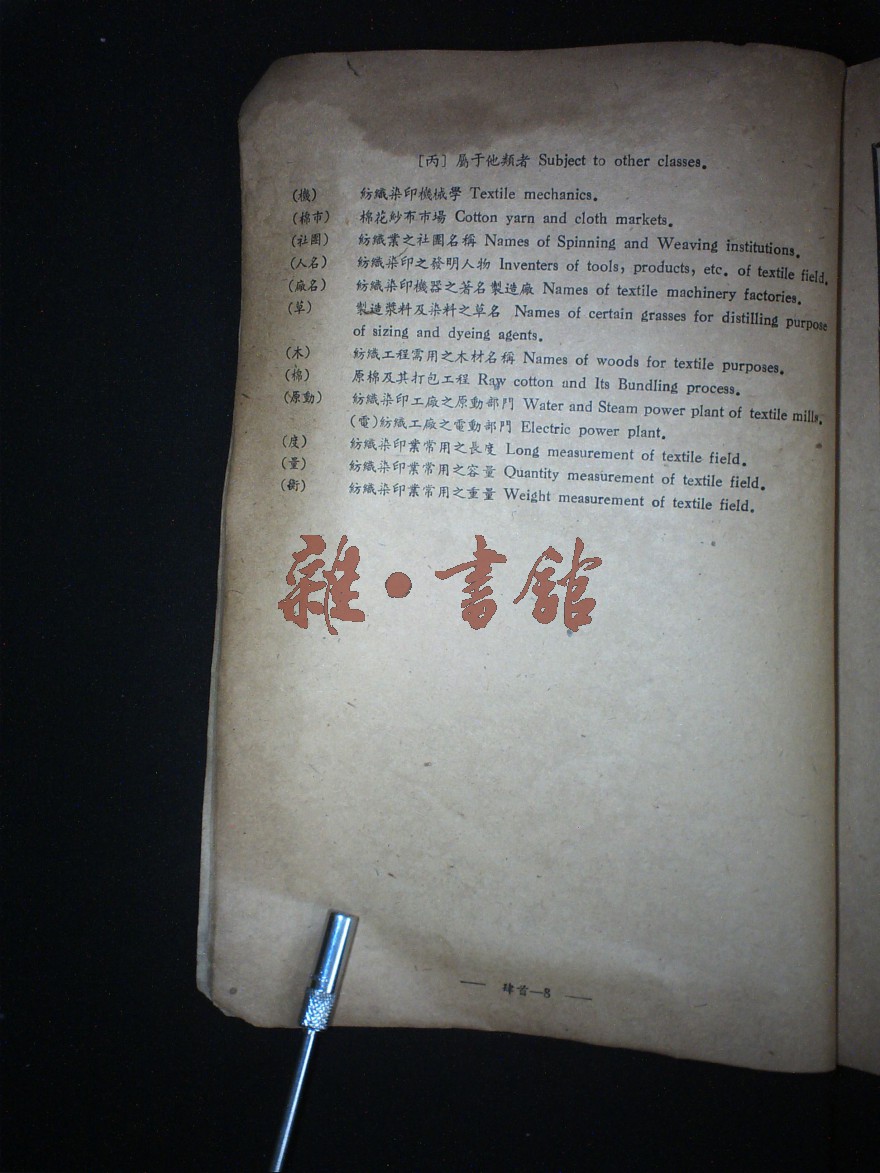 [丙] 屬于他類者 Subject to other classes.
(機) 紡織染印機械學 Textile mechanics.
(棉市) 棉花紗布市場 Cotton yarn and cloth markets.
(社團) 紡織業之社團名稱 Names of Spinning and Weaving institutions.
(人名) 紡織染印之發明人物 Inventers of tools, products, etc. of textile field.
(廠名) 紡織染印機器之著名製造廠 Names of textile machinery factories.
(草) 製造漿料及染料之草名 Names of certain grasses for distilling purpose
of sizing and dyeing agents.
(木) 紡織工程需用之木材名稱 Names of woods for textile purposes.
(棉) 原棉及其打包工程 Raw cotton and Its Bundling process.
(原動) 紡織染印工廠之原動部門 Water and Steam power plant of textile mills.
(電)紡織工廠之電動部門 Electric power plant.
(度) 紡織染印業常用之長度 Long measurement of textile field.
(量) 紡織染印業常用之容量 Quantity measurement of textile field.
(衡) 紡織染印業常用之重量 Weight measurement of textile field.
雜·書館
— 肆首—8 —